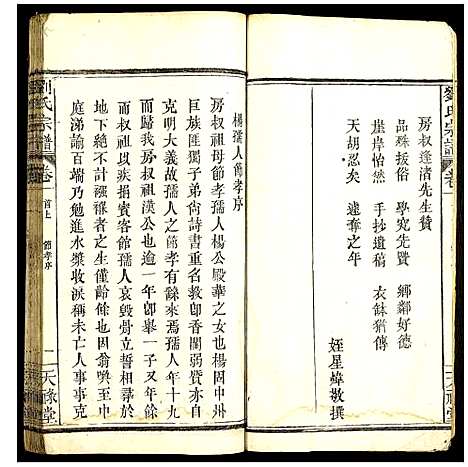 劉氏宗譜
卷
房叔逢渚先生贊
品殊扳俗　學究先賢　鄉鄰好德
崖岸怡然　手抄遺稿　衣缽猶傳
天胡忍矣　遽奪之年
姪星煒敬撰
楊孺人節孝序
房叔祖母節孝孺人楊公殿華之女也楊固中州
巨族匪獨子弟尙詩書重名教即香閨弱賢亦自
克明大義故孺人之節孝有餘來焉孺人年十九
而歸我房叔祖漢公也逾一年即舉一子又年餘
而叔祖以疾捐賓客館孺人哀毀骨立屢暫不起
地下絶不計襁褓者之生僅齡餘也因其嗚至中
庭涕諭百端乃勉進水漿收淚稱未亡人事事克
劉氏宗譜
卷一
首上
節孝序
一
天祿堂